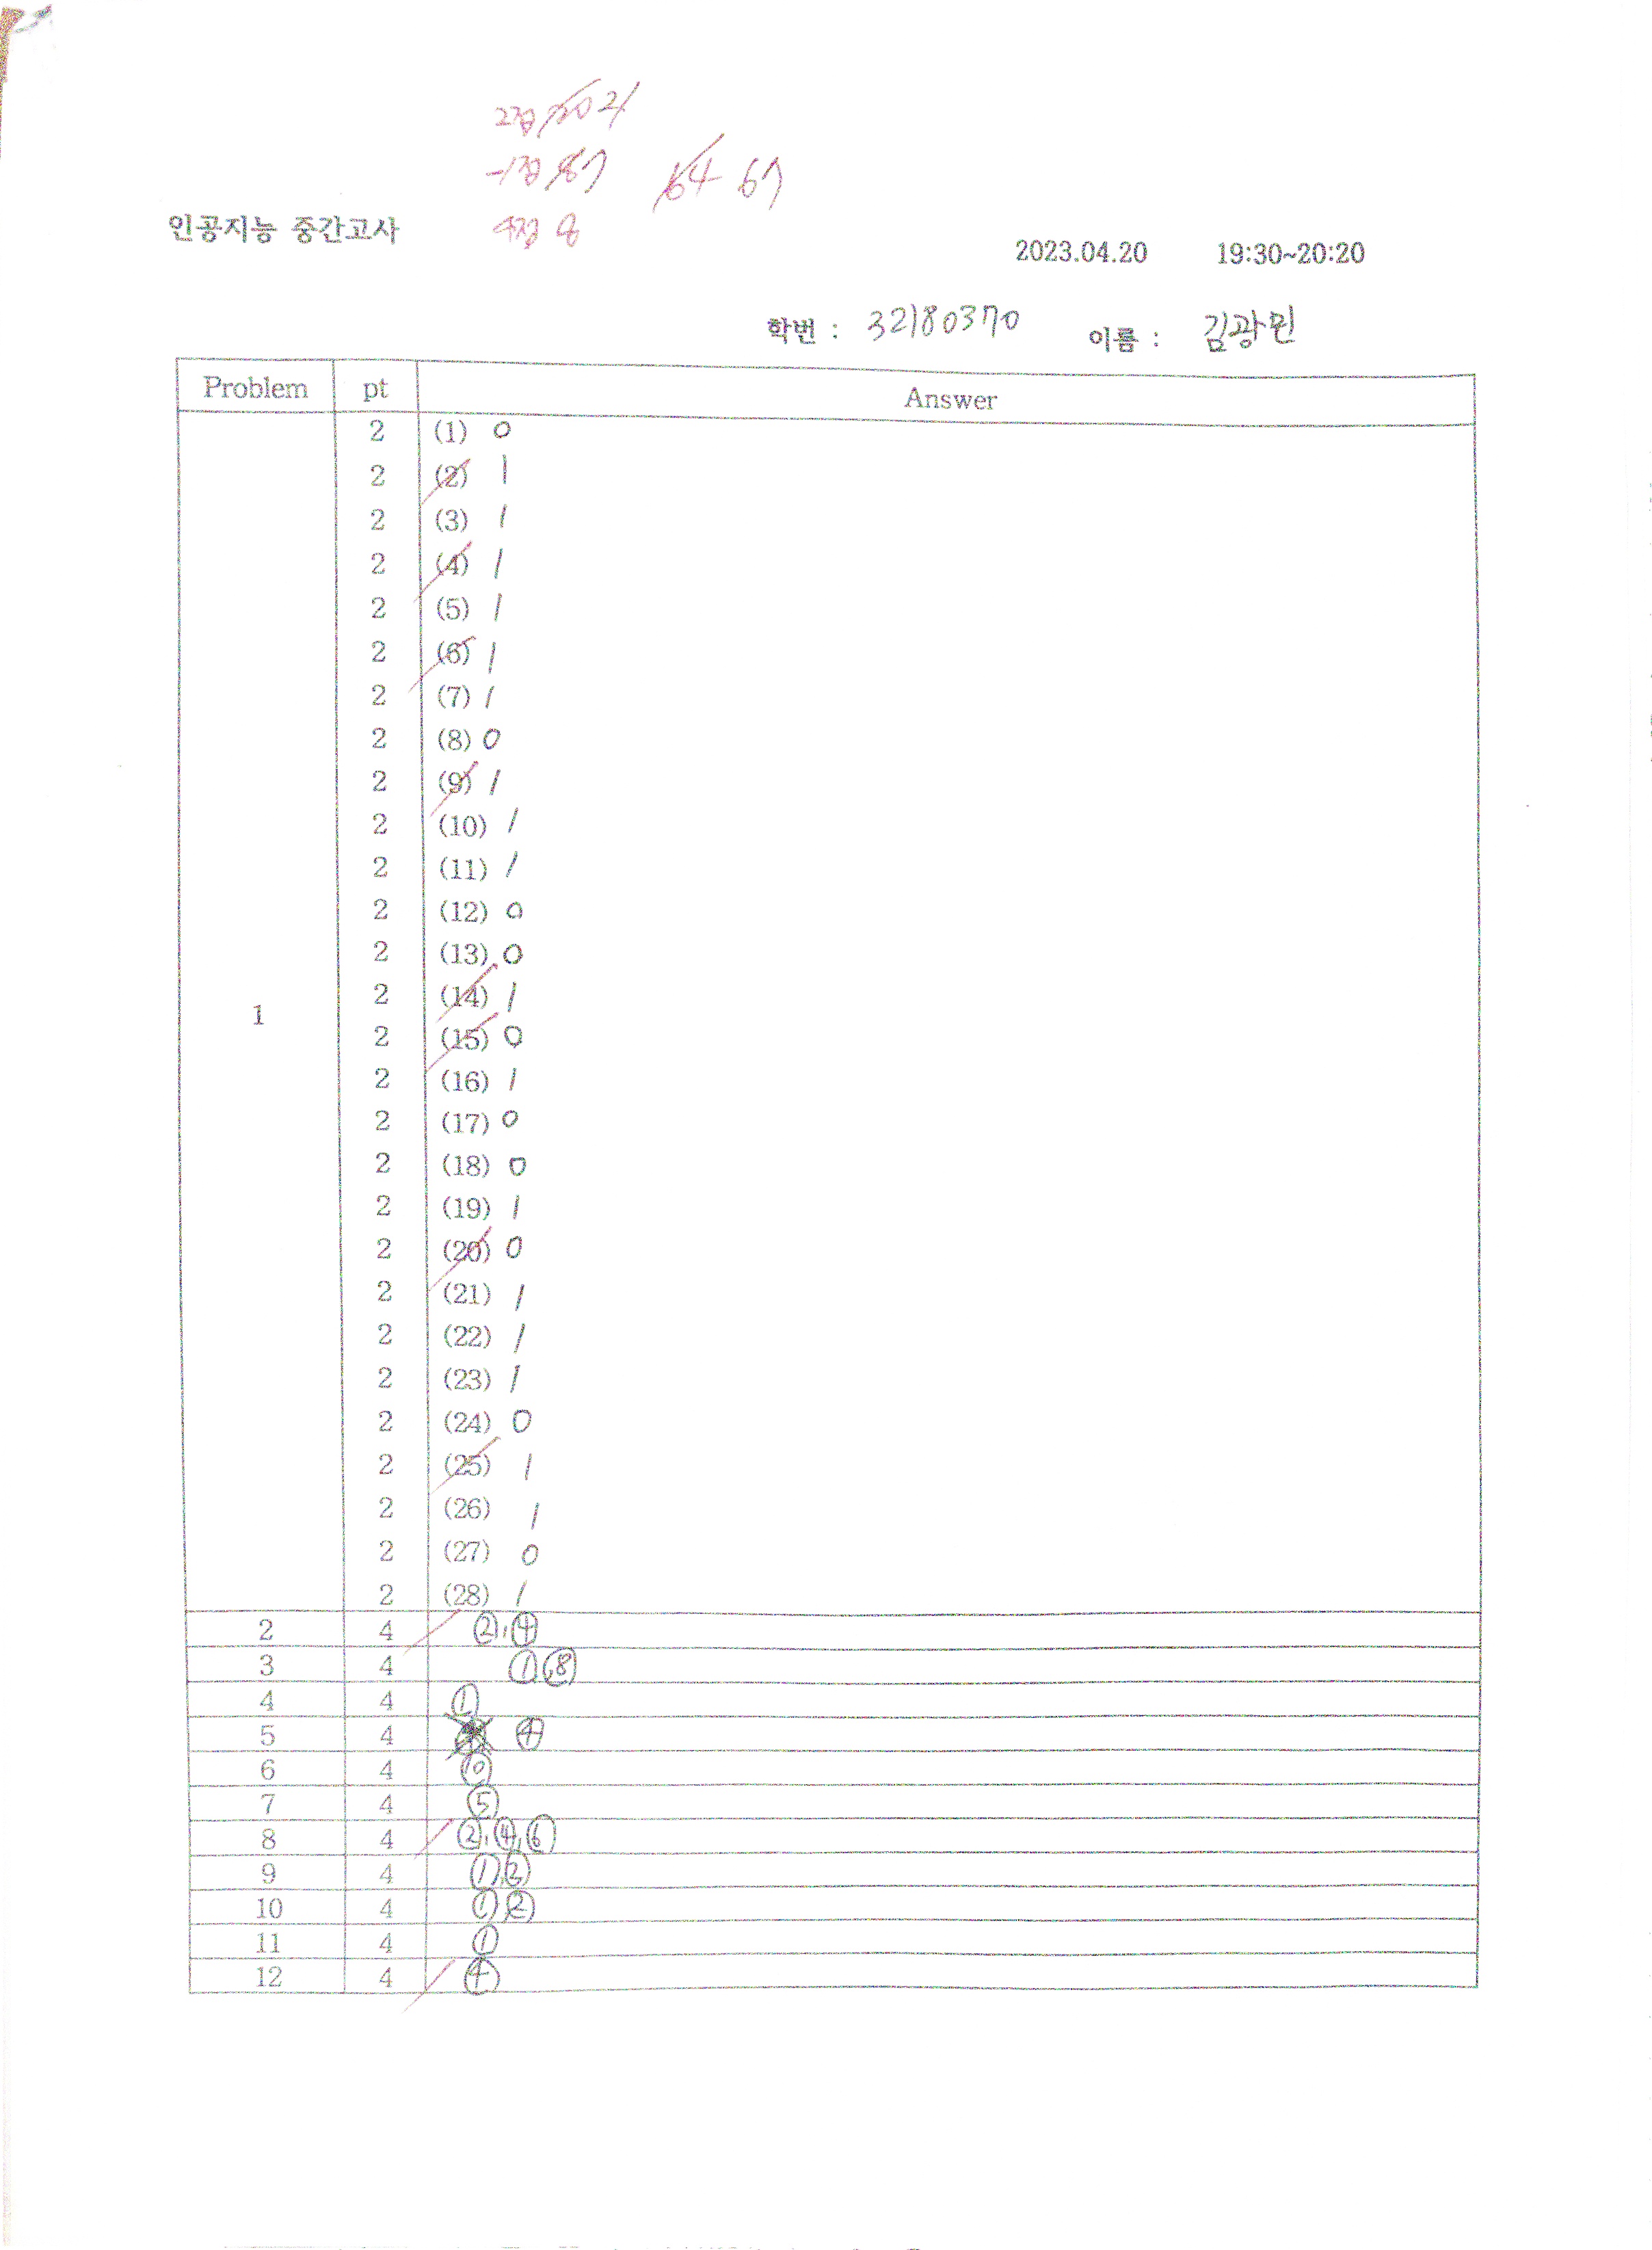 2점 20 21
-1점 8 7
64 67
4점 8
인공지능 중간고사
2023.04.20 19:30~20:20
학번 : 32180370 이름 : 김광민
Problem pt Answer
1
2 (1) 0
2 (2) 1
2 (3) 1
2 (4) 1
2 (5) 1
2 (6) 1
2 (7) 1
2 (8) 0
2 (9) 1
2 (10) 1
2 (11) 1
2 (12) 0
2 (13) 0
2 (14) 1
2 (15) 0
2 (16) 1
2 (17) 0
2 (18) 0
2 (19) 1
2 (20) 0
2 (21) 1
2 (22) 1
2 (23) 1
2 (24) 0
2 (25) 1
2 (26) 1
2 (27) 0
2 (28) 1
2 4 ②, ④
3 4 ① ⑧
4 4 ①
5 4 ④
6 4 ⑩
7 4 ⑤
8 4 ②, ④, ⑥
9 4 ①, ③
10 4 ① ②
11 4 ①
12 4 ④